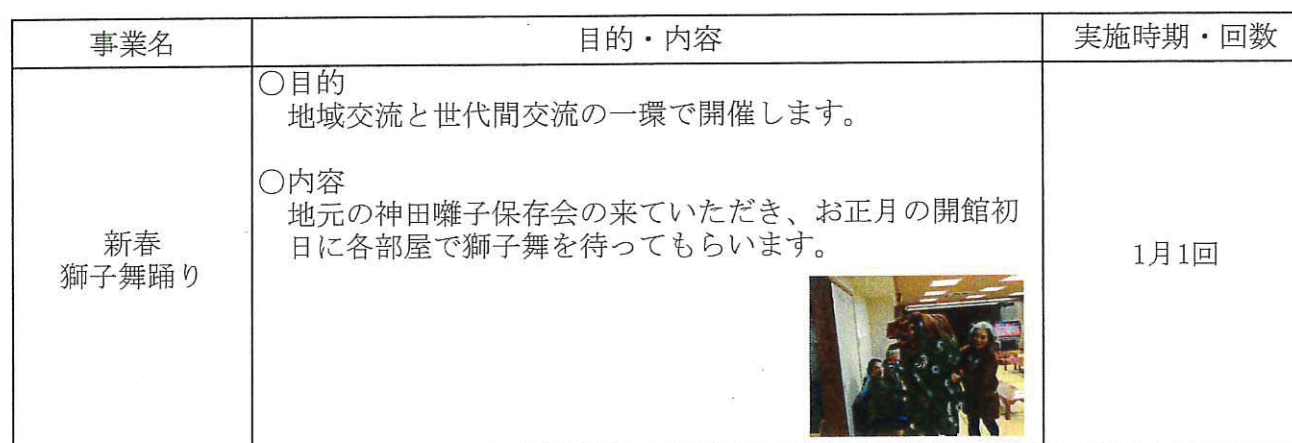 事業名
目的・内容
実施時期・回数
新春
獅子舞踊り
○目的
地域交流と世代間交流の一環で開催します。
○内容
地元の神田囃子保存会の来ていただき、お正月の開館初
日に各部屋で獅子舞を待ってもらいます。
1月1回